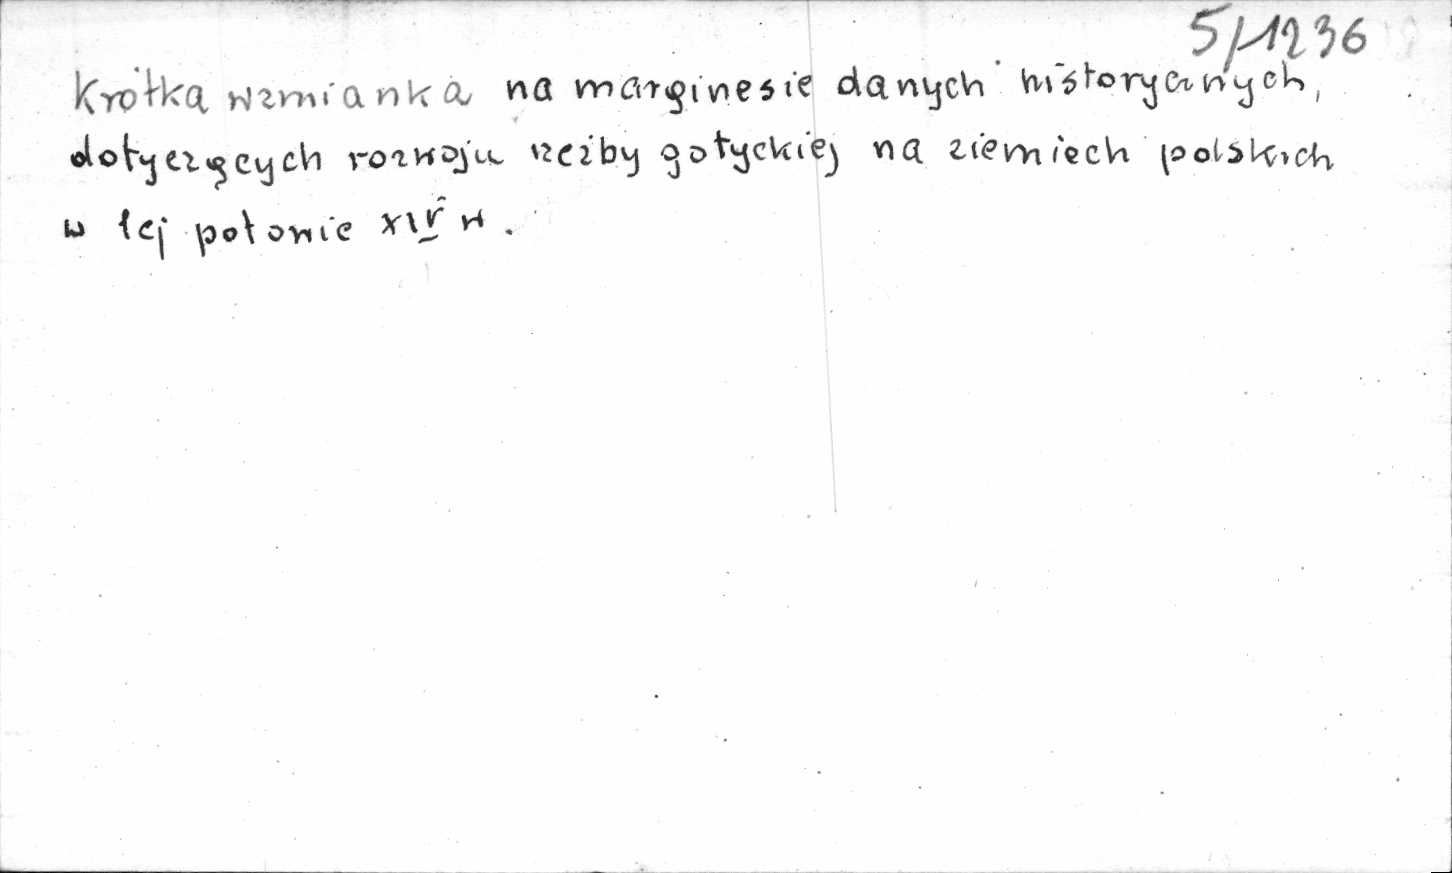 5/1236
Krótka wzmianka na marginesie danych historycznych,
dotyczących rozwoju rzeźby gotyckiej na ziemiech polskich
w 1ej połowie XIV w.